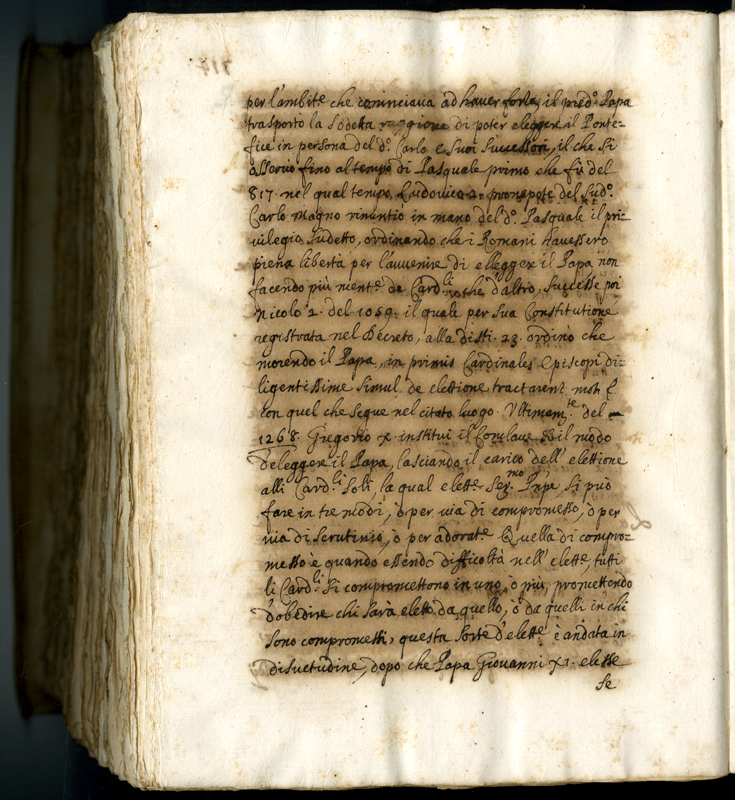 per l'ambite che cominciava ad haver forte, il pred.º Papa
trasportò la Sodetta raggione di poter eleggere il Ponte=
fice in persona del d.º Carlo e Suoi Successori, il che si
osservò fino al tempo di Pasquale primo che fù del
817. nel qual tempo Ludovico 2. pronepote del Sud.º
Carlo Magno rinuntiò in mano del d.º Pasquale il pri=
uilegio Sudetto, ordinando che i Romani havessero
piena libertà per l'auuenire di elleggere il Papa non
facendo più ment.e de Card.li che d'altro, Successe poi
Nicolò 2. del 1059. il quale per sua Constitutione
registrata nel Decreto, alla disti. 23. ordinò che
morendo il Papa, in primis Cardinales Episcopi di=
ligentissime simul de elettione tractarent
con quel che segue nel citato luogo. Ultimam.te del
1268. Gregorio X instituì il Conclave & il modo
d'eleggere il Papa, lasciando il carico dell'elettione
alli Card.li soli, la qual elett.e si può
fare in tre modi, ò per uia di compromesso, ò per
uia di Scrutinio, ò per adorat.e Quella di compro=
messo è quando essendo difficoltà nell'elett.e tutti
li Card.li si compromettono in uno, ò più, promettendo
d'obedire chi sarà eletto da quello, ò da quelli in chi
sono compromessi, questa sorte d'elett.e è andata in
disuetudine, dopo che Papa Giovanni XI. elesse
se